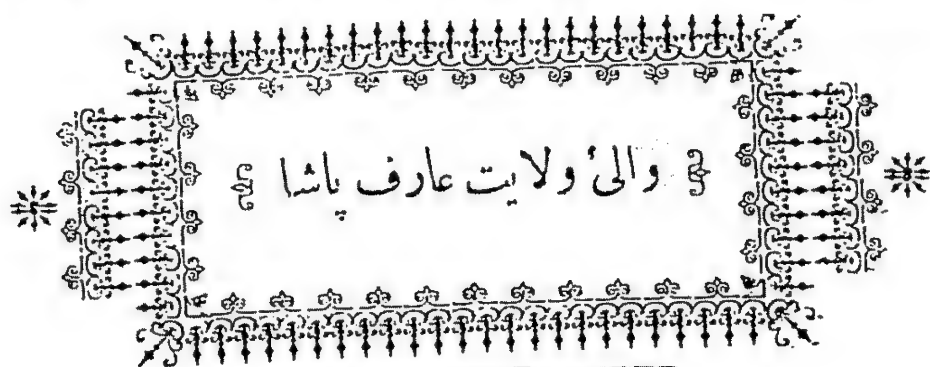 ﴿ والئ ولايت عارف پاشا ﴾